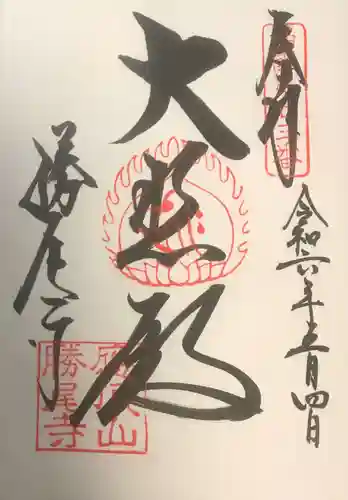 奉拝
大悲殿
勝尾寺
令和六年五月四日
應頂山
勝尾寺